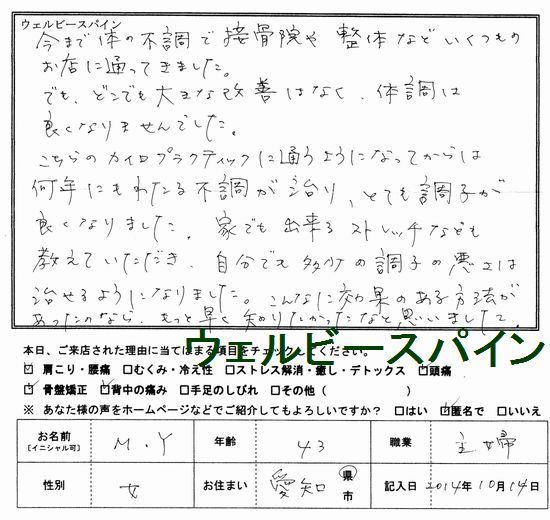 ウェルビースパイン
今まで体の不調で接骨院や整体などいくつもの
お店に通ってきました。
でも、どこでも大きな改善はなく、体調は
良くなりませんでした。
こちらのカイロプラクティックに通うようになってからは
何年にもわたる不調が治り、とても調子が
良くなりました。家でも出来るストレッチなども
教えていただき、自分でも多少の調子の悪さは
治せるようになりました。こんなに効果のある方法が
あったのなら もっと早く知りたかったなと思いました。
ウェルビースパイン
本日、ご来店された理由に当てはまる項目をチェックしてください。
☑肩こり・腰痛 □むくみ・冷え性 □ストレス解消・癒し・デトックス ☑頭痛
☑骨盤矯正 ☑背中の痛み □手足のしびれ □その他（ ）
※ あなた様の声をホームページなどでご紹介してもよろしいですか？ □はい ☑匿名で □いいえ
お名前 [イニシャル可] M.Y 年齢 43 職業 主婦
性別 女 お住まい 愛知 県 市 記入日 2014年10月14日